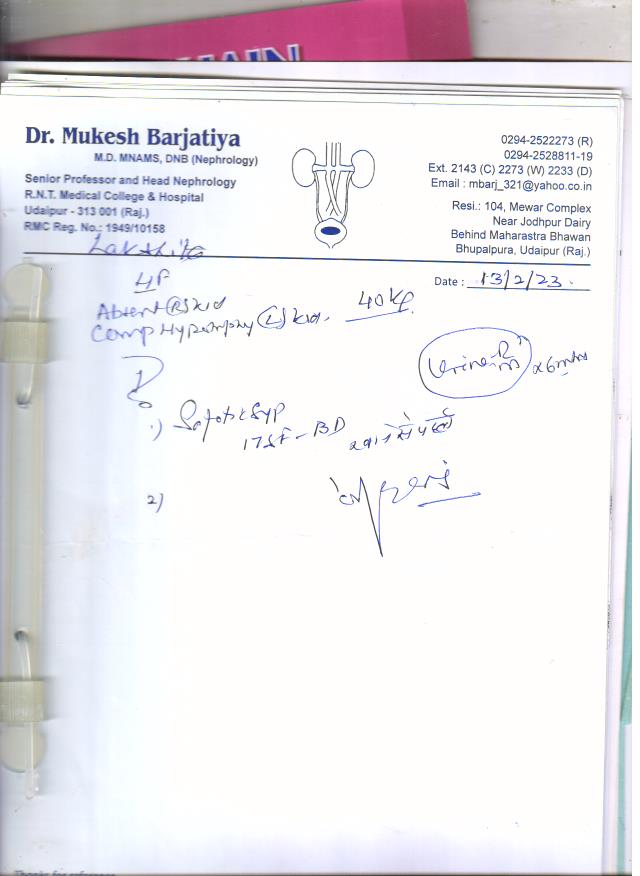 Dr. Mukesh Barjatiya
M.D. MNAMS, DNB (Nephrology)
Senior Professor and Head Nephrology
R.N.T. Medical College & Hospital
Udaipur - 313 001 (Raj.)
RMC Reg. No.: 1949/10158
0294-2522273 (R)
0294-2528811-19
Ext. 2143 (C) 2273 (W) 2233 (D)
Email : mbarj_321@yahoo.co.in
Resi.: 104, Mewar Complex
Near Jodhpur Dairy
Behind Maharastra Bhawan
Bhupalpura, Udaipur (Raj.)
Date : 13/2/23.
Absent (R) kid
Comp Hypertrophy (L) kid.
40 kg.
Urine R/m x 6 mnths
1) Syp
1 TSF - BD
2)